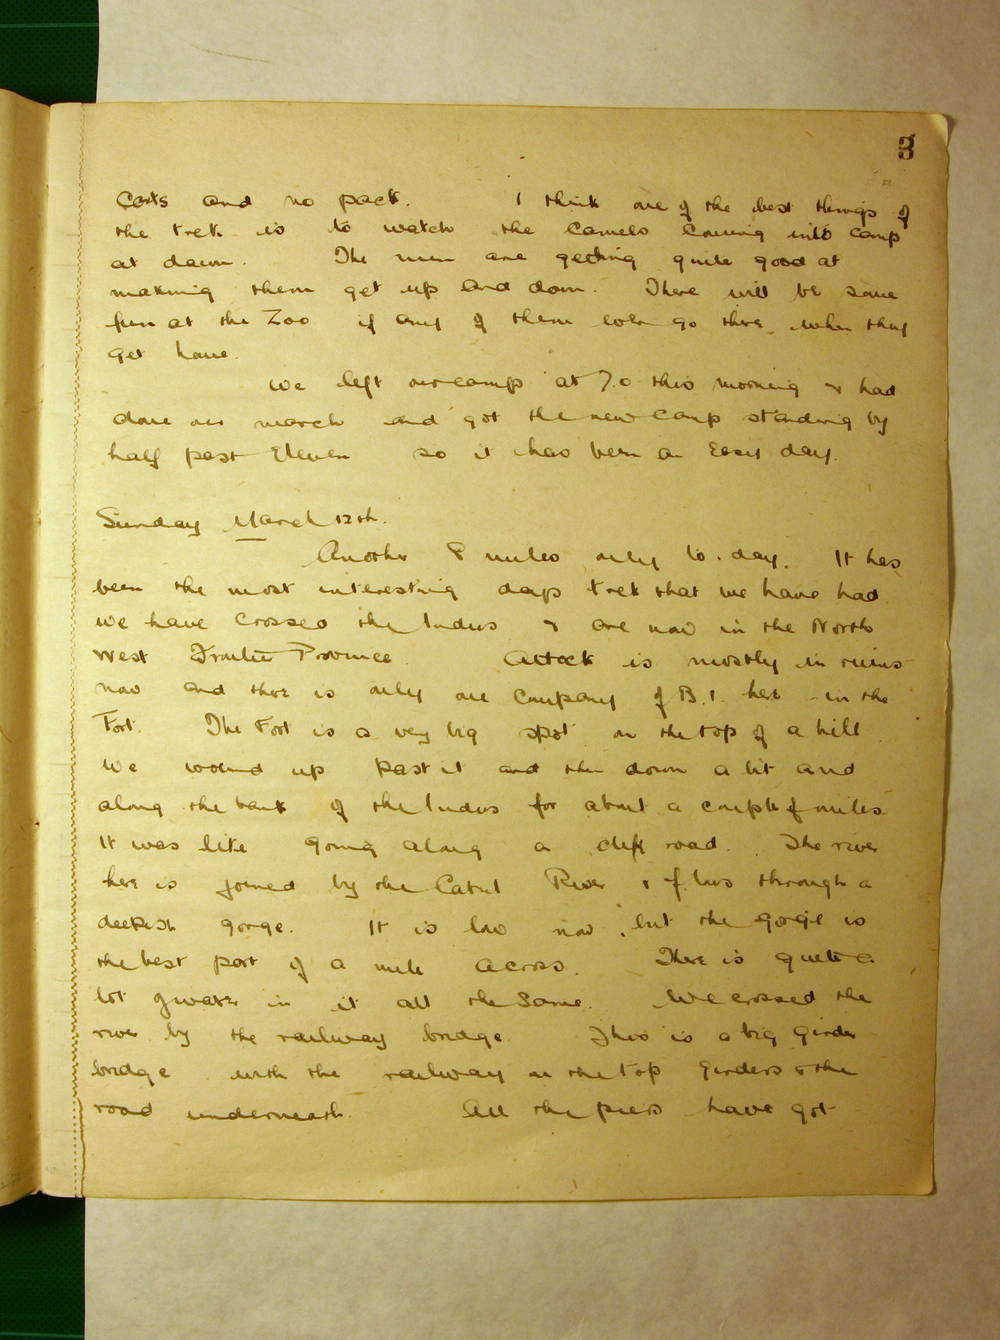 3
Carts and no pack. I think one of the best things of
the trek is to watch the Camels coming into camp
at dawn. The men are getting quite good at
making them get up and down. There will be some
fun at the Zoo if any of them ever go there when they
get home.
We left our camp at 7.0 this morning & had
done our march and got the new camp standing by
half past Eleven so it has been an Easy day.
Sunday March 12th.
Another 8 miles only to-day. It has
been the most interesting days trek that we have had
we have Crossed the Indus & are now in the North
West Frontier Province. Attock is mostly in ruins
now and there is only one Company of B.I. here in the
Fort. The Fort is a very big spot on the top of a hill
We wound up past it and then down a bit and
along the bank of the Indus for about a couple of miles.
It was like going along a cliff road. The river
here is joined by the Cabul River & flows through a
deepish gorge. It is low now, but the gorge is
the best part of a mile across. There is quite a
lot of water in it all the same. We crossed the
river by the railway bridge. This is a big girder
bridge with the railway on the top girders & the
road underneath. All the piers have got